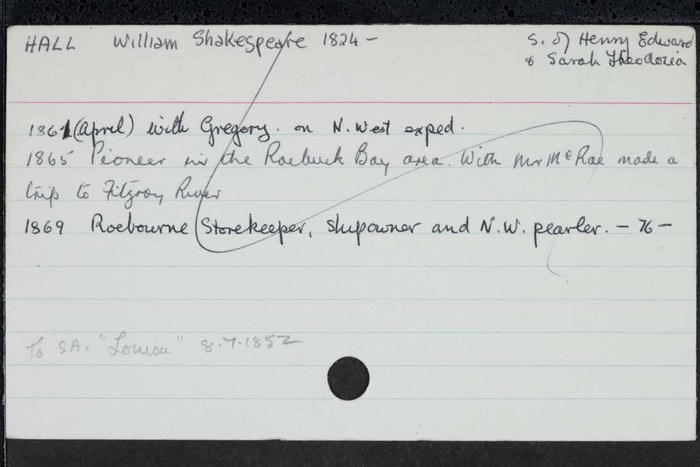 HALL William Shakespeare 1824 -
S. of Henry Edward
& Sarah Theodosia
1861 (April) with Gregory. on N. West exped.
1865 Pioneer in the Roebuck Bay area. With Mr McRae made a
trip to Fitzroy River
1869 Roebourne Storekeeper, shipowner and N.W. pearler. - 76 -
To SA. "Louisa" 8.7.1852